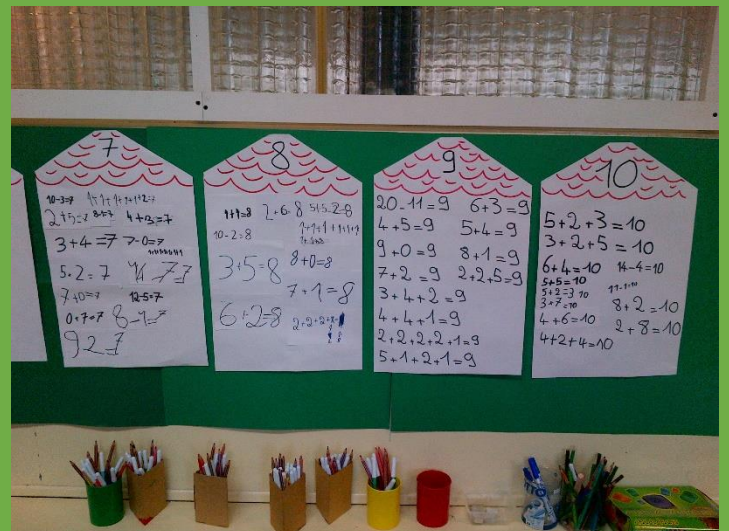 7
10-3=7
2+5=7
4+3=7
3+4=7
7-0=7
5+2=7
7+0=7
12-5=7
0+7=7
8-1=7
9-2=7
8
2+6=8
10-2=8
3+5=8
8+0=8
7+1=8
6+2=8
9
20-11=9 6+3=9
4+5=9 5+4=9
9+0=9 8+1=9
7+2=9 2+2+5=9
3+4+2=9
4+4+1=9
2+2+2+2+1=9
5+1+2+1=9
10
5+2+3=10
3+2+5=10
6+4=10 14-4=10
5+5=10
5+2+3=10
3+7=10 8+2=10
4+6=10 2+8=10
4+2+4=10